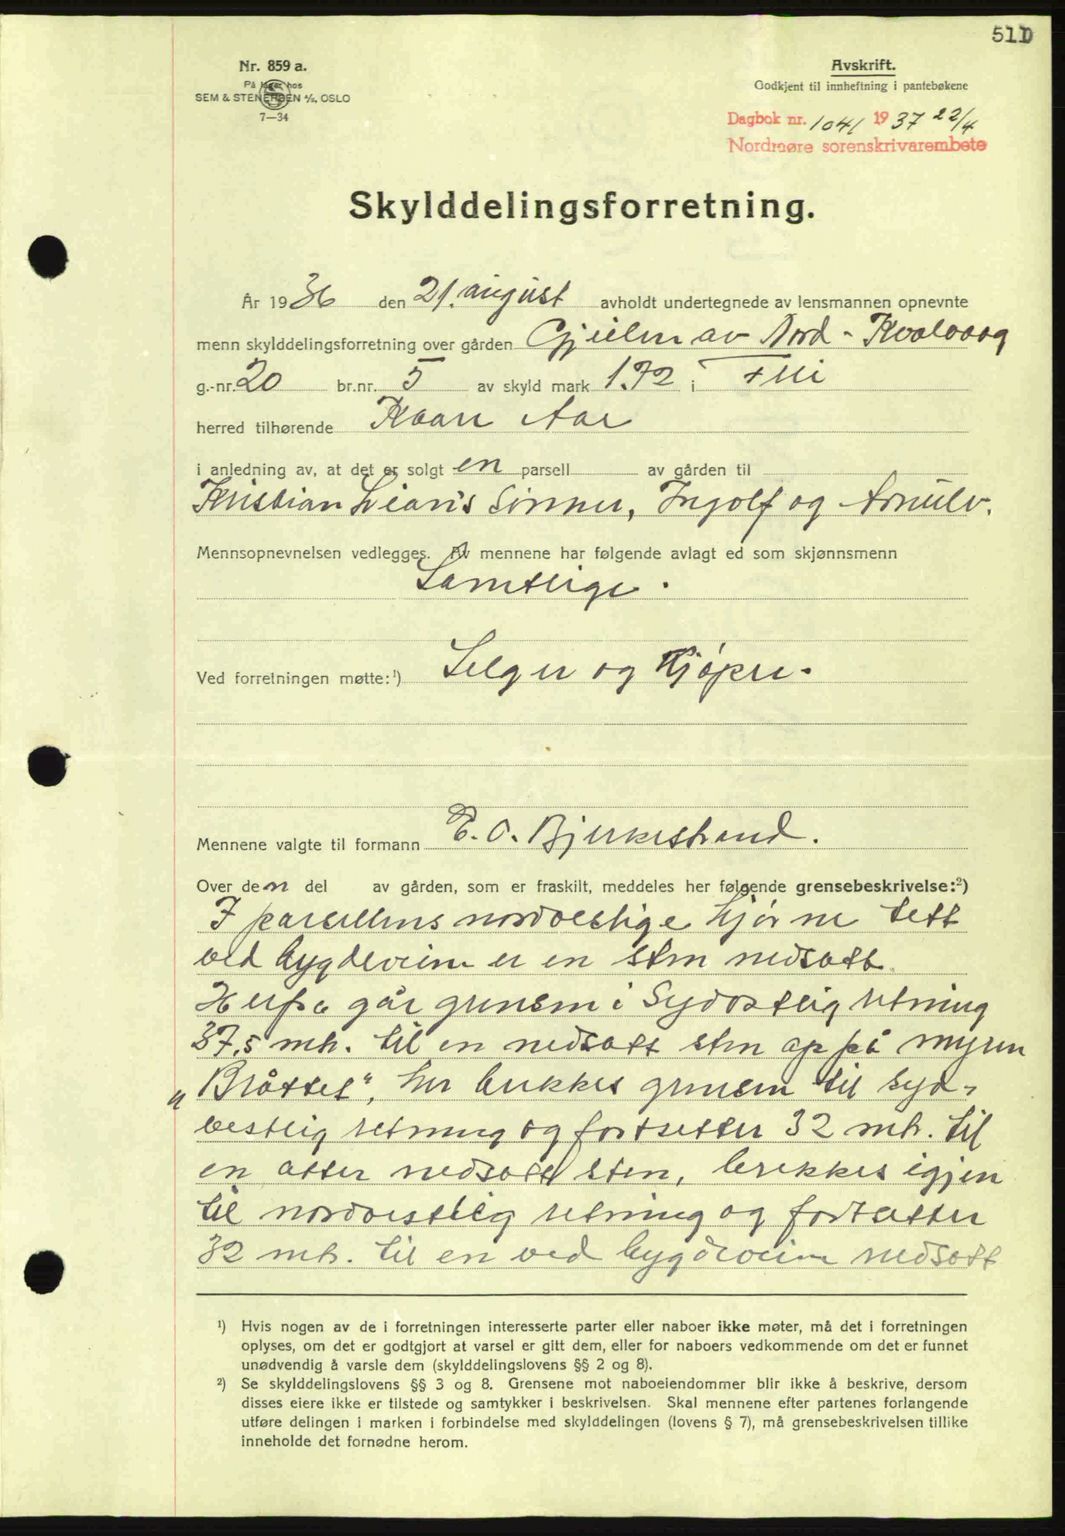 511
Nr. 859 a.
På lager hos
SEM & STENERSEN A/S, OSLO
7—34
Avskrift.
Godkjent til innheftning i pantebøkene
Dagbok nr. 1041 1937 22/4
Nordmøre sorenskrivarembete
Skylddelingsforretning.
År 1936 den 21. august avholdt undertegnede av lensmannen opnevnte
menn skylddelingsforretning over gården Gjeilen av Nord-Kvalvaag
g.-nr. 20 br.nr. 5 av skyld mark 1.72 i
herred tilhørende Kaare Aae
i anledning av, at det er solgt en parsell av gården til
Kristian Lians Sønner, Ingolf og Arnulv.
Mennsopnevnelsen vedlegges. Av mennene har følgende avlagt ed som skjønnsmenn
Samtlige.
Ved forretningen møtte:¹) Selger og Kjøper.
Mennene valgte til formann E. O. Bjerkestrand.
Over den del av gården, som er fraskilt, meddeles her følgende grensebeskrivelse:²)
I parsellens nordvestlige hjørne tett
ved bygdeveien er en sten nedsatt.
Herfra går grensen i Sydostlig retning
37,5 mtr. til en nedsatt sten op på myren
"Blåttet", her brekkes grensen til Syd-
vestlig retning og fortsetter 32 mtr. til
en atter nedsatt sten, brekkes igjen
til nordvestlig retning og fortsetter
32 mtr. til en ved bygdeveien nedsatt
¹) Hvis nogen av de i forretningen interesserte parter eller naboer ikke møter, må det i forretningen
oplyses, om det er godtgjort at varsel er gitt dem, eller for naboers vedkommende om det er funnet
unødvendig å varsle dem (skylddelingslovens §§ 2 og 8).
²) Se skylddelingslovens §§ 3 og 8. Grensene mot naboeiendommer blir ikke å beskrive, dersom
disses eiere ikke er tilstede og samtykker i beskrivelsen. Skal mennene efter partenes forlangende
utføre delingen i marken i forbindelse med skylddelingen (lovens § 7), må grensebeskrivelsen tillike
inneholde det fornødne herom.